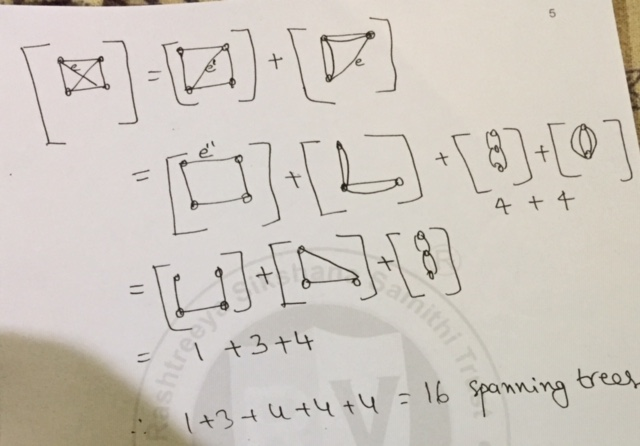 5
e = e' + e
= e" + + +
4 + 4
= + +
= 1 + 3 + 4
∴ 1 + 3 + 4 + 4 + 4 = 16 spanning trees
Rashtreeya Sikshana Samithi Trust
RV